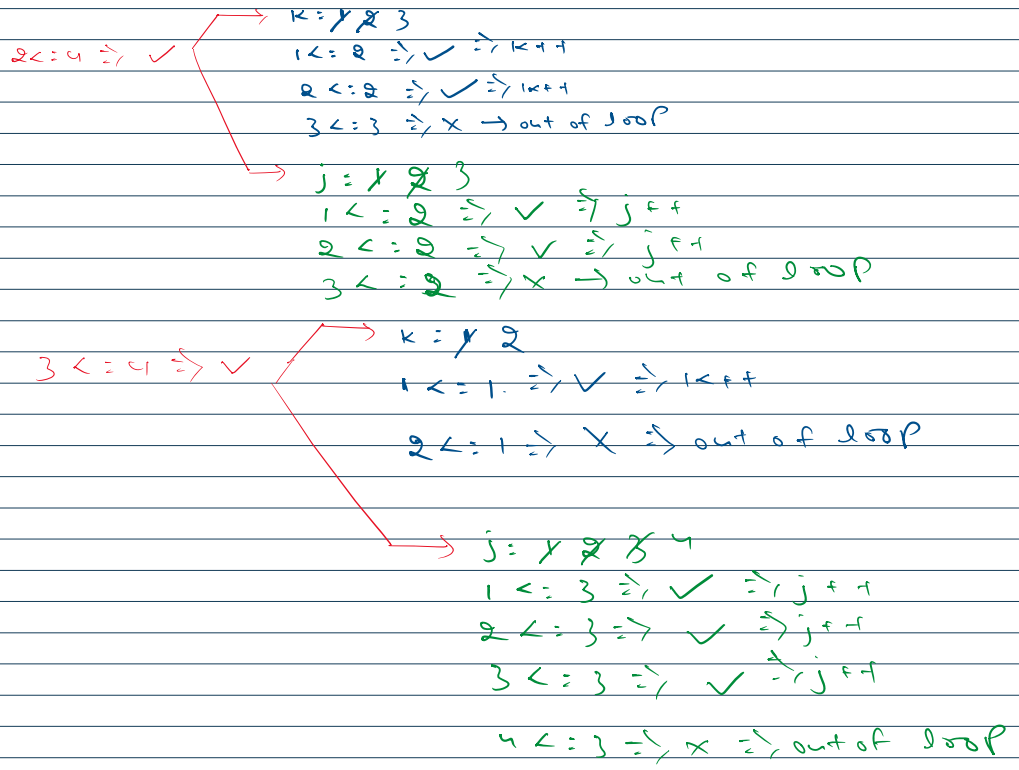 K = 1 2 3
2 <= 4 => ✓
1 <= 2 => ✓ => k++
2 <= 2 => ✓ => k++
3 <= 3 => x → out of loop
j = 1 2 3
1 <= 2 => ✓ => j++
2 <= 2 => ✓ => j++
3 <= 2 => x → out of loop
K = 1 2
3 <= 4 => ✓
1 <= 1. => ✓ => k++
2 <= 1 => X => out of loop
j = 1 2 3 4
1 <= 3 => ✓ => j++
2 <= 3 => ✓ => j++
3 <= 3 => ✓ => j++
4 <= 3 => x => out of loop